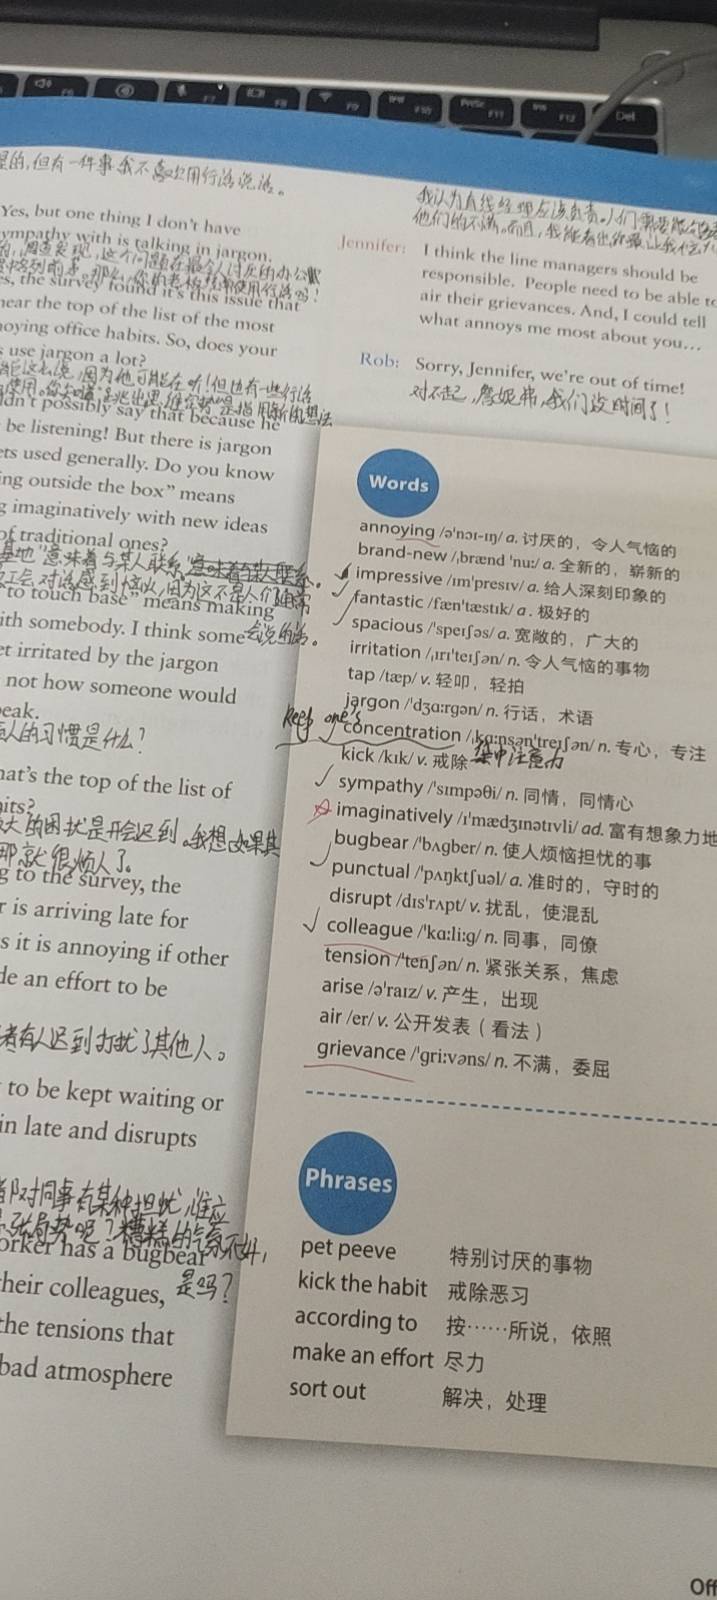 F6
F7
F8
F9
F10
PrtSc
F11
Ins
F12
Del
的,但有一件事我不喜欢用行话说话。
Yes, but one thing I don't have
sympathy with is talking in jargon.
s, the survey found it's this issue that
near the top of the list of the most
noying office habits. So, does your
s use jargon a lot?
dn't possibly say that because he
be listening! But there is jargon
ets used generally. Do you know
ing outside the box" means
g imaginatively with new ideas
of traditional ones?
"意味着与某人联系
"to touch base" means making
ith somebody. I think some
会说的话。
et irritated by the jargon
not how someone would
eak.
人的习惯是什么?
hat's the top of the list of
its?
大的困扰是开会迟到。我想如果其
那就很烦人了。
g to the survey, the
r is arriving late for
s it is annoying if other
de an effort to be
者有人迟到打扰了其他人。
to be kept waiting or
in late and disrupts
都对同事有某种担忧,谁应
orker has a bugbear
heir colleagues,
是吗?
the tensions that
bad atmosphere
我认为直线经理应该负责。人们需要
他们的不满。而且,我能看出你最让我
Jennifer: I think the line managers should be
responsible. People need to be able to
air their grievances. And, I could tell
what annoys me most about you…
Rob: Sorry, Jennifer, we're out of time!
对不起,詹妮弗,我们没时间了!
Words
annoying /ə'nɔɪ-ɪŋ/ a. 讨厌的，令人气恼的
brand-new /ˌbrænd 'nuː/ a. 全新的，崭新的
impressive /ɪm'presɪv/ a. 给人深刻印象的
fantastic /fæn'tæstɪk/ a. 极好的
spacious /'speɪʃəs/ a. 宽敞的，广大的
irritation /ˌɪrɪ'teɪʃən/ n. 令人气恼的事物
tap /tæp/ v. 轻叩，轻拍
jargon /'dʒɑːrɡən/ n. 行话，术语
keep one's
concentration /ˌkɑːnsən'treɪʃən/ n. 专心，专注
kick /kɪk/ v. 戒除 集中注意力
sympathy /'sɪmpəθi/ n. 同情，同情心
imaginatively /ɪ'mædʒɪnətɪvli/ ad. 富有想象力地
bugbear /'bʌɡber/ n. 使人烦恼担忧的事
punctual /'pʌŋktʃuəl/ a. 准时的，守时的
disrupt /dɪs'rʌpt/ v. 扰乱，使混乱
colleague /'kɑːliːɡ/ n. 同事，同僚
tension /'tenʃən/ n. 紧张关系，焦虑
arise /ə'raɪz/ v. 产生，出现
air /er/ v. 公开发表（看法）
grievance /'ɡriːvəns/ n. 不满，委屈
Phrases
pet peeve 特别讨厌的事物
kick the habit 戒除恶习
according to 按……所说，依照
make an effort 尽力
sort out 解决，处理
Off